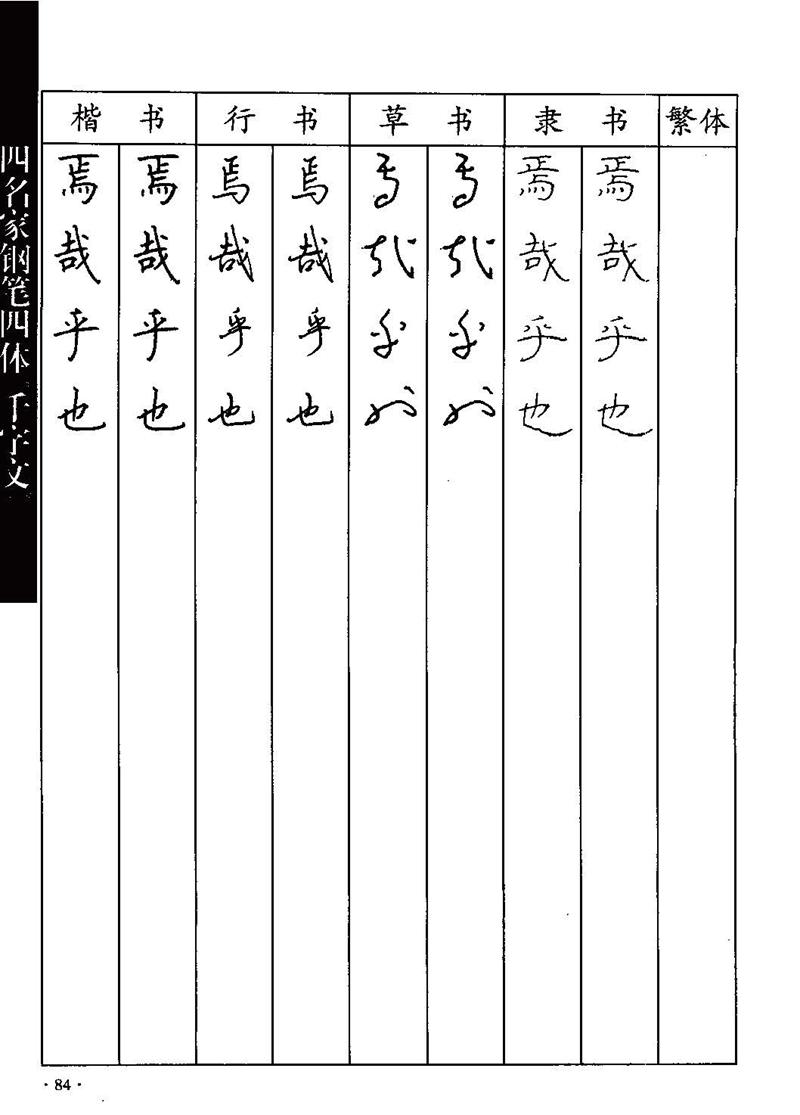 四名家钢笔四体 千字文
楷书 行书 草书 隶书 繁体
焉 焉 焉 焉 焉 焉 焉 焉
哉 哉 哉 哉 哉 哉 哉 哉
乎 乎 乎 乎 乎 乎 乎 乎
也 也 也 也 也 也 也 也
·84·